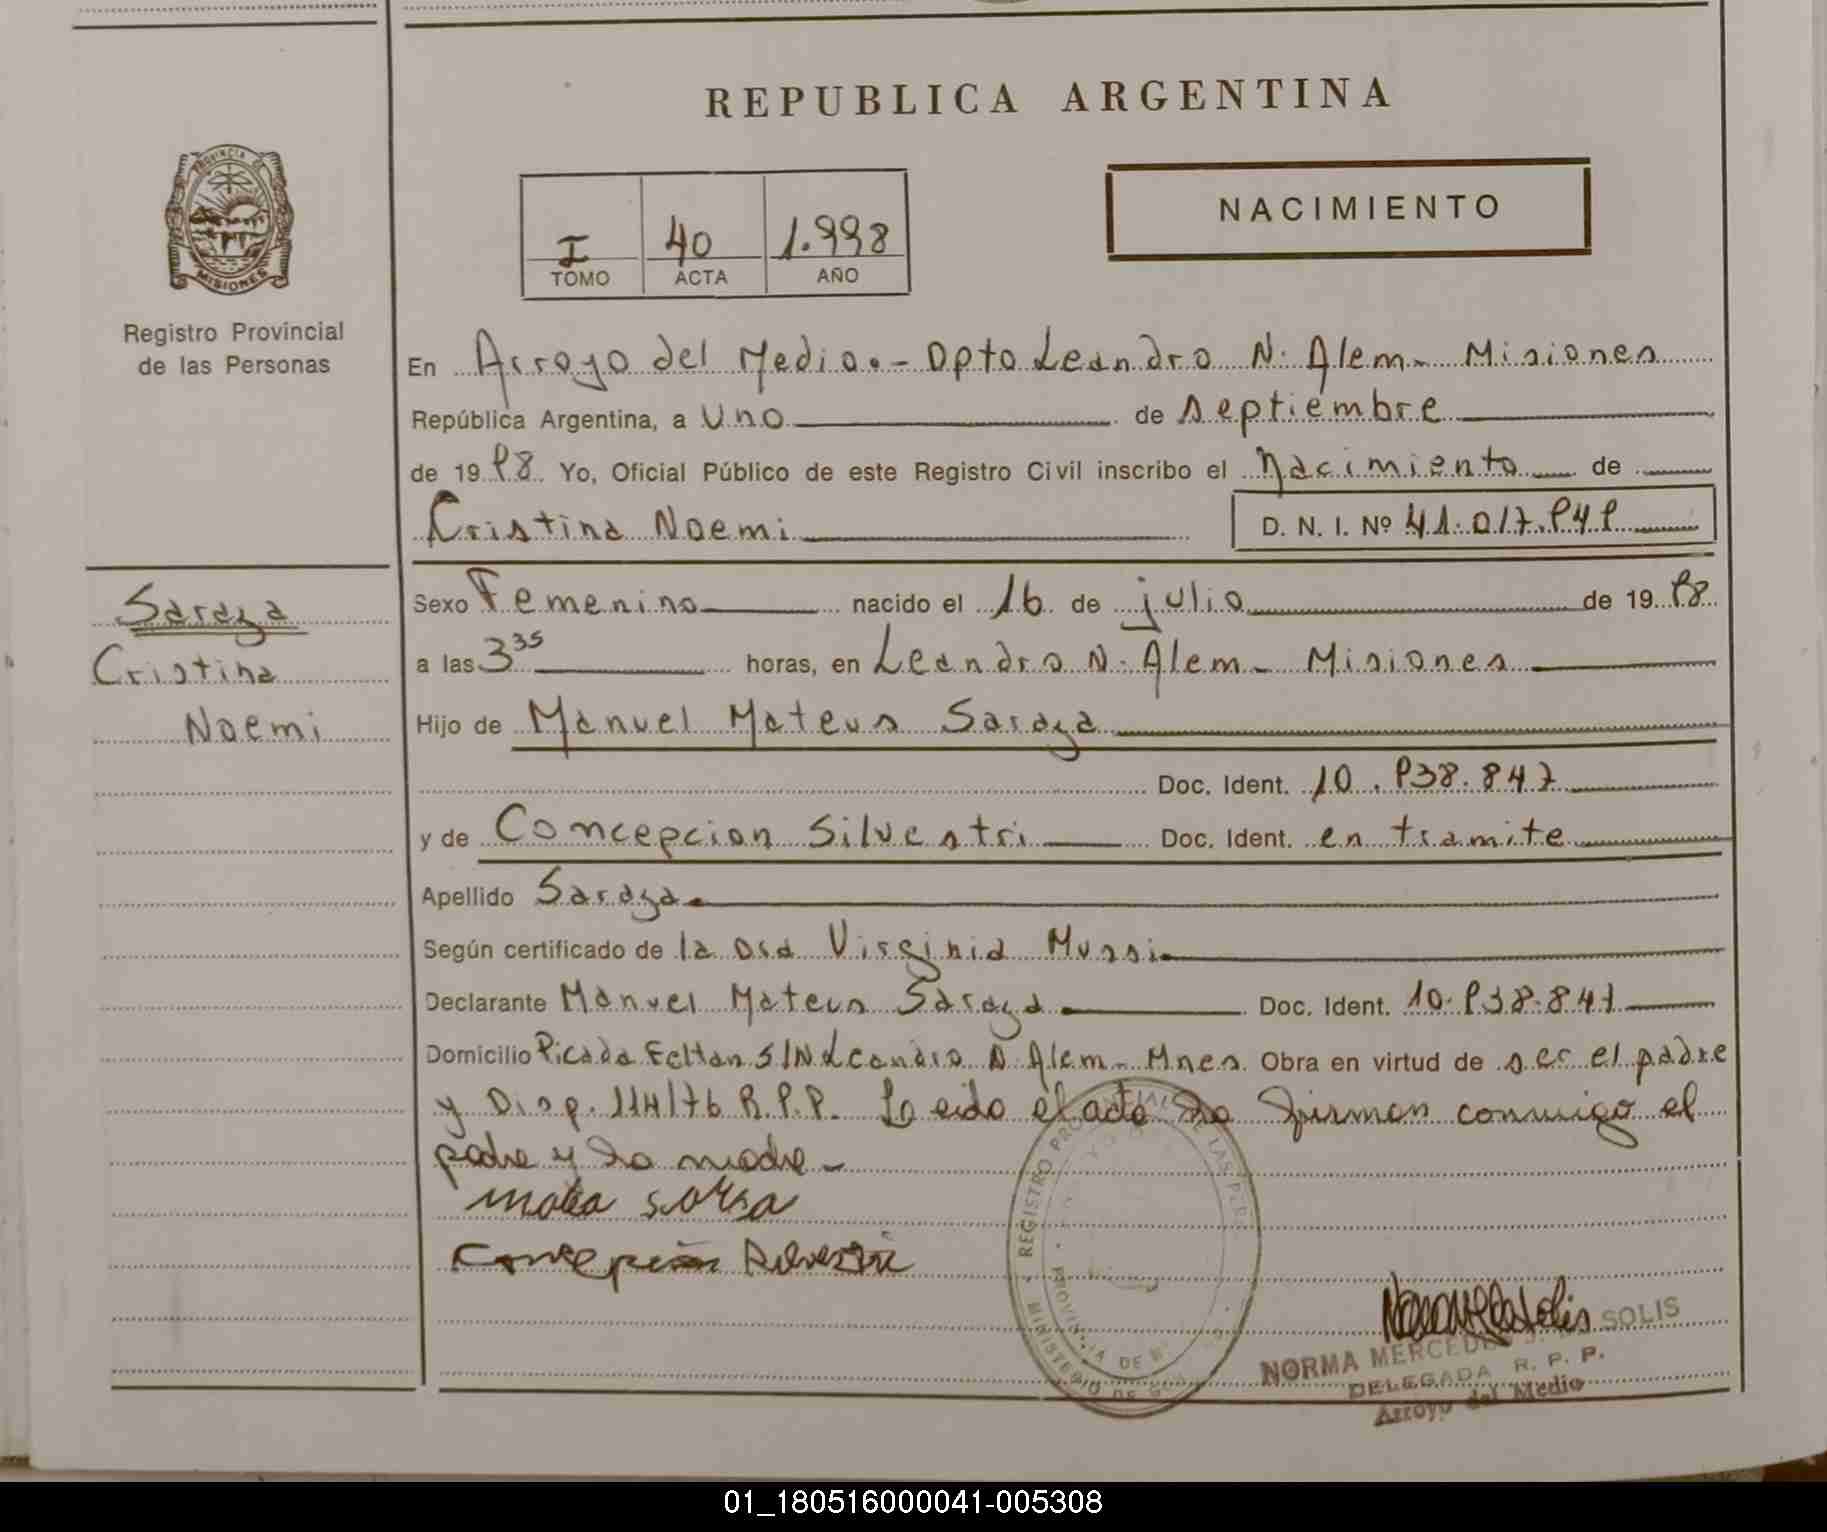 REPUBLICA ARGENTINA
PROVINCIA DE
MISIONES
Registro Provincial
de las Personas
I 40 1.998
TOMO ACTA AÑO
NACIMIENTO
En Arroyo del Medio.- Dpto Leandro N. Alem- Misiones
República Argentina, a Uno de septiembre
de 1998 Yo, Oficial Público de este Registro Civil inscribo el Nacimiento de
Cristina Noemi D. N. I. Nº 41.017.949
Saraza
Cristina
Noemi
Sexo Femenino nacido el 16 de julio de 1998
a las 3 35 horas, en Leandro N. Alem- Misiones
Hijo de Manuel Mateus Saraza
Doc. Ident. 10.938.847
y de Concepcion Silvestri Doc. Ident. en tramite
Apellido Saraza
Según certificado de la Dra Virginia Mussi
Declarante Manuel Mateus Saraza Doc. Ident. 10.938.847
Domicilio Picada Feltan S/N Leandro N. Alem- Mnes. Obra en virtud de ser el padre
y Disp. 114/76 R.P.P. Leido el acta la firman conmigo el
padre y la madre-
Concepción Silvestri
REGISTRO PROVINCIAL DE LAS PERS
MINISTERIO DE GOB
PROVINCIA DE
NORMA MERCEDES SOLIS
DELEGADA R. P. P.
Arroyo del Medio
01_180516000041-005308